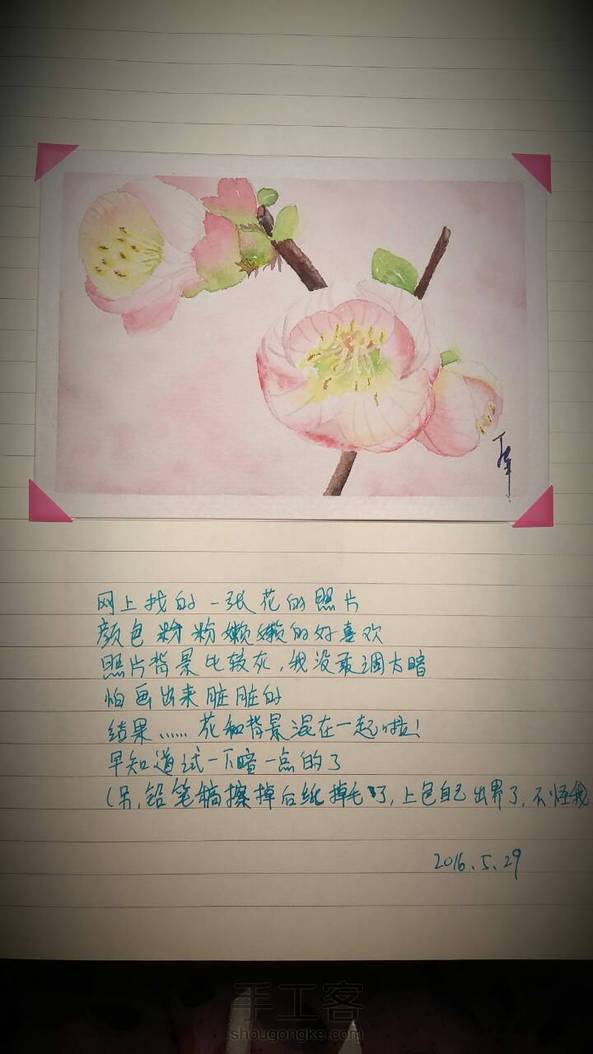 网上找的一张花的照片
颜色粉粉嫩嫩的好喜欢
照片背景比较灰,我没敢调太暗
怕画出来脏脏的
结果……花和背景混在一起啦!
早知道试一下暗一点的了
(另,铅笔稿擦掉后纸掉毛了,上色自己出界了,不怪我
2016.5.29
手工客
shougongke.com